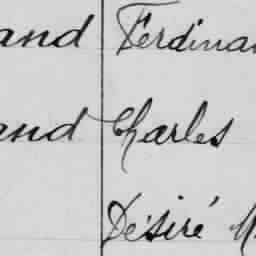 and Ferdinan
and Charles
Désiré M